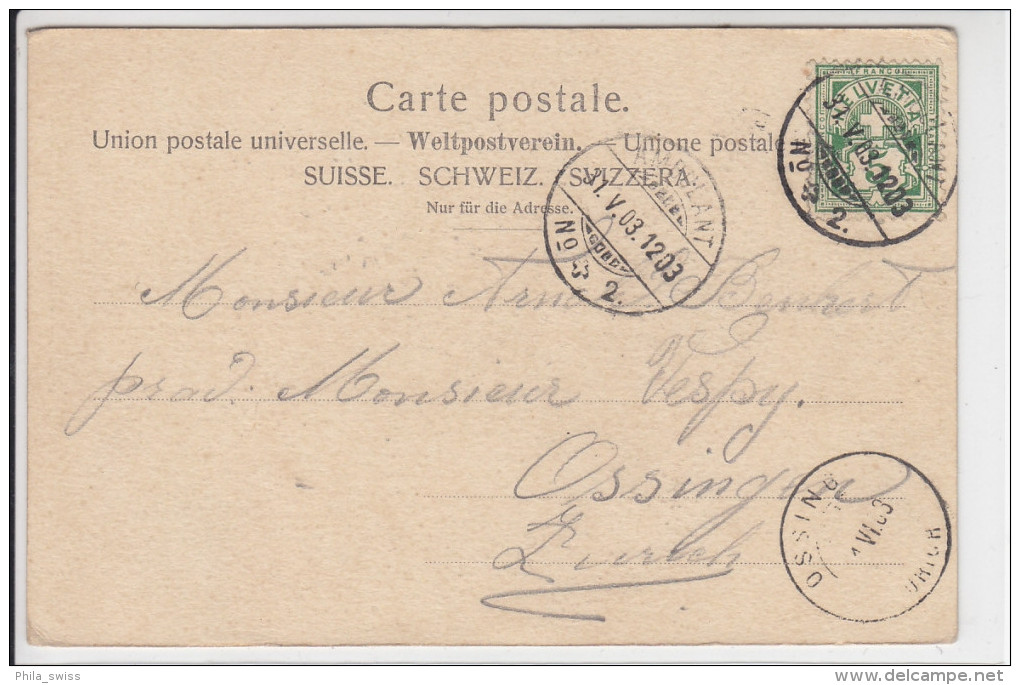 Carte postale.
Union postale universelle. — Weltpostverein. — Unione postale
SUISSE. SCHWEIZ. SVIZZERA.
Nur für die Adresse.
FRANCO
HELVETIA
31.V.03.1203
No 3 2.
AMBULANT
31.V.03.1203
No 3 2.
Monsieur
Monsieur Vespy.
Ossingen
Zurich
OSSING
1 VI.03
URICH
Phila_swiss
www.delcampe.net